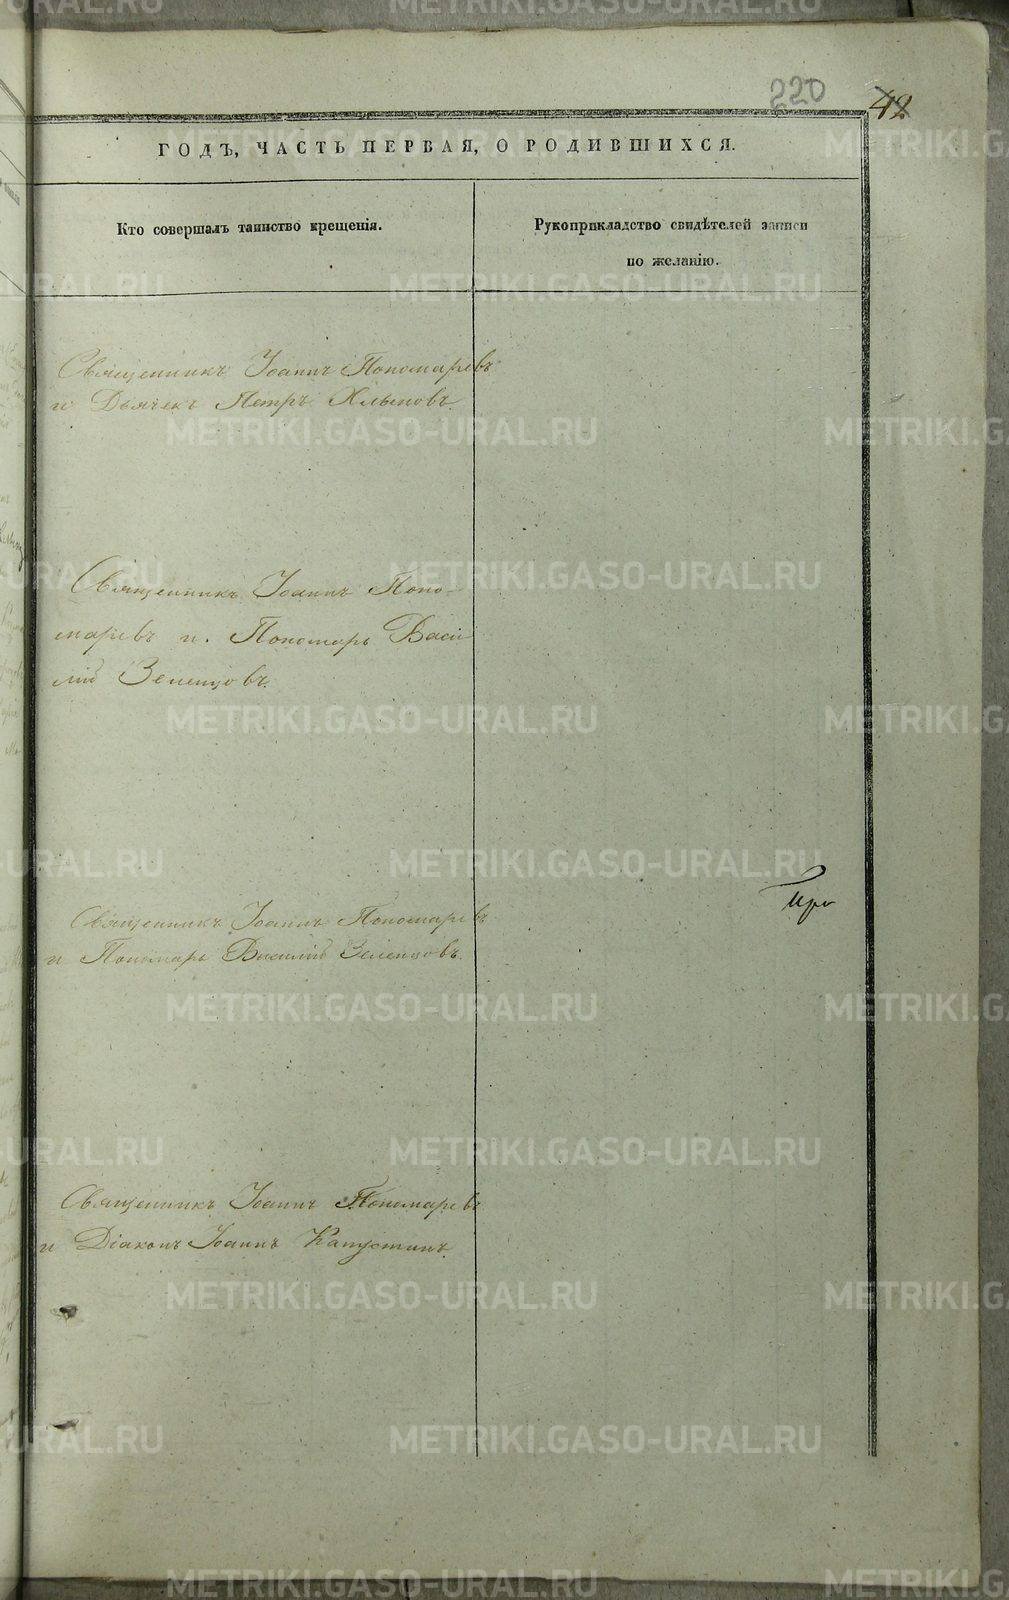 220
42
ГОДЪ, ЧАСТЬ ПЕРВАЯ, О РОДИВШИХСЯ.
Кто совершалъ таинство крещенія.
Рукоприкладство свидѣтелей записи
по желанію.
Священникъ Іоаннъ Пономаревъ
и Дьячекъ Петръ Хлыновъ
Священникъ Іоаннъ Поно-
маревъ и. Пономарь Васи
лій Зеленцовъ.
Священникъ Іоаннъ Пономаревъ
и Пономарь Василій Зеленцовъ.
При
Священникъ Іоаннъ Пономаревъ
и Діаконъ Іоаннъ Капустинъ.
METRIKI.GASO-URAL.RU